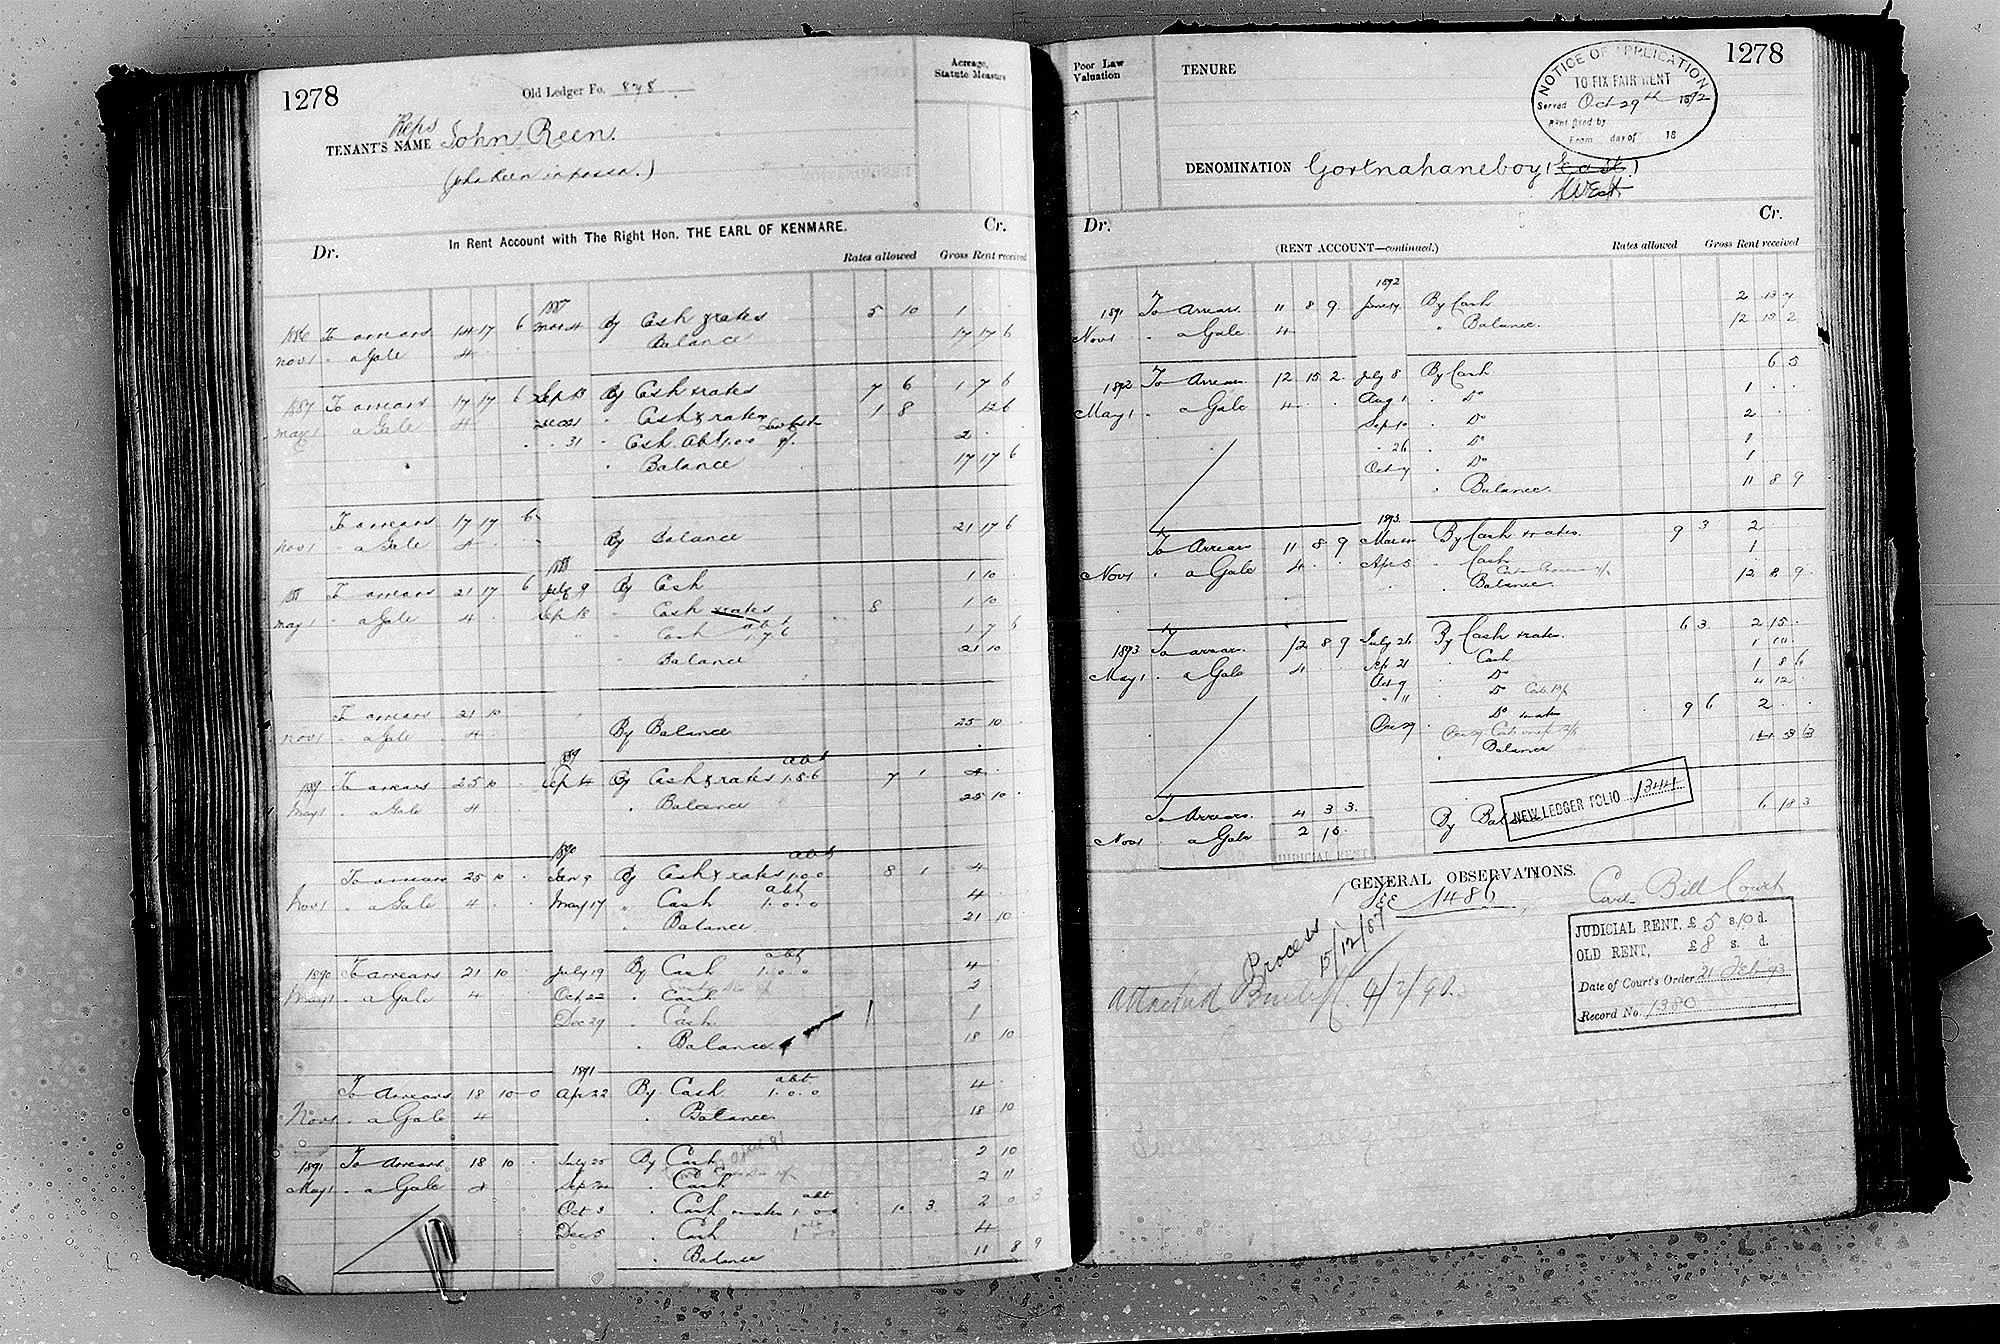 1278
Old Ledger Fo. 878
Acreage,
Statute Measure
Reps
TENANT'S NAME John Reen.
(Jho Reen in possn.)
In Rent Account with The Right Hon. THE EARL OF KENMARE.
Dr. Cr.
Rates allowed Gross Rent received
1887
1886 To arrears 14 17 6 Mar 4 By Cash & rates 5 10 1 . .
Nov 1 " a Gale 4 . . Balance 17 17 6
1887 To arrears 17 17 6 Sep 13 By Cash & rates 7 6 1 7 6
May 1 " a Gale 4 . . Dec 21 " Cash & rates 1 8 12 6
" 31 " Cash Abt 1.0.0 2 . .
" Balance 17 17 6
To arrears 17 17 6
Nov 1 " a Gale 4 . . By Balance 21 17 6
1888
1888 To arrears 21 17 6 July 9 By Cash 1 10 .
May 1 " a Gale 4 . . Sep 18 " Cash & rates 8 1 10
" " Cash abt 1.7.6 1 7 6
" Balance 21 10
To arrears 21 10
Nov 1 " a Gale 4 . . By Balance 25 10 .
1889 abt
1889 To arrears 25 10 . Sep 14 By Cash & rates 1.8.6 7 1 4 . .
May 1 " a Gale 4 . . " Balance 25 10 .
1890 abt
To arrears 25 10 . Jan 9 By Cash & rates 1.0.0 8 1 4
Nov 1 " a Gale 4 . . May 17 " Cash abt 1.0.0 4
Balance 21 10
1890 To arrears 21 10 . July 19 By Cash abt 1.0.0 4
May 1 " a Gale 4 . Oct 22 " Cash 2
Dec 29 " Cash 1
" Balance 18 10
1891
To Arrears 18 10 0 Apr 22 By Cash abt 1.0.0 4
Nov 1 " a Gale 4 " Balance 18 10
1891 To Arrears 18 10 . July 25 By Cash 2 10
May 1 " a Gale 4 Sep " Cash 2 11
Oct 3 " Cash & rates abt 1.0.0 10 3 2 0 3
Dec 5 " Cash 4
" Balance 11 8 9
Poor Law
Valuation
TENURE
1278
NOTICE OF APPLICATION
TO FIX FAIR RENT
Served Oct 29th 1892
Rent fixed by
From day of 18
DENOMINATION Gortnahaneboy (East)
West
Dr. Cr.
(RENT ACCOUNT—continued.)
Rates allowed Gross Rent received
1892
1891 To Arrears. 11 8 9. June 14 By Cash 2 13 7
Nov 1 " a Gale 4 " Balance. 12 15 2
1892 To Arrears. 12 15 2. July 8 By Cash 6 5
May 1 " a Gale 4 . . Aug 1 " Do 1 . .
Sep 10 " Do 2 . .
" 26 " Do 1
Oct 7 " Do 1
" Balance. 11 8 9
1893
To Arrears 11 8 9 Mar By Cash & rates. 9 3 2 . .
Nov 1 " a Gale 4 . . Apr 5 " Cash 1
Balance. 12 8 9.
1893 To arrears. 12 8 9 July 26 By Cash & rates. 6 3 2 15 .
May 1 " a Gale 4 Sep 21 " Cash 1 10 .
Oct 9 " Do 1 8 6
" 11 " Do 4 12
Dec 29 " Do & rates 9 6 2 . .
Balance
To Arrears. 4 3 3.
Nov 1 " a Gale 2 15. By Balance 6 18 3
JUDICIAL RENT
NEW LEDGER FOLIO 1344
GENERAL OBSERVATIONS.
See 1486
Civil Bill Court
Process 15/12/87
Attached 4/2/90.
JUDICIAL RENT, £ 5 s.10 d.
OLD RENT, £ 8 s. d.
Date of Court's Order 21 Feb 93
Record No. 1380